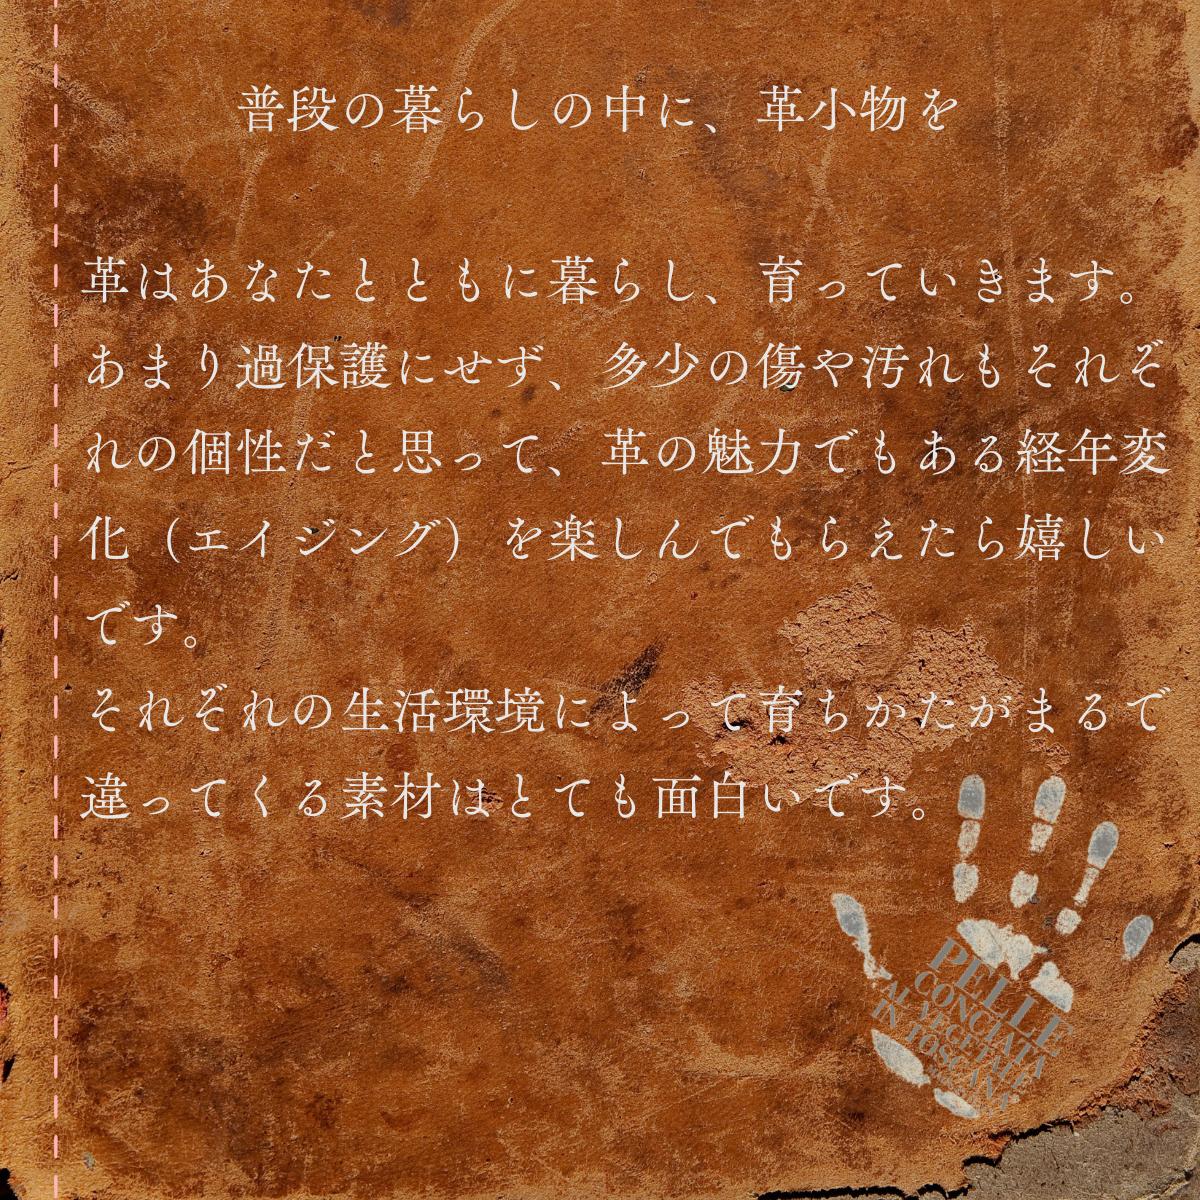 普段の暮らしの中に、革小物を
革はあなたとともに暮らし、育っていきます。
あまり過保護にせず、多少の傷や汚れもそれぞ
れの個性だと思って、革の魅力でもある経年変
化（エイジング）を楽しんでもらえたら嬉しい
です。
それぞれの生活環境によって育ちかたがまるで
違ってくる素材はとても面白いです。
PELLE
CONCIATA
AL VEGETALE
IN TOSCANA